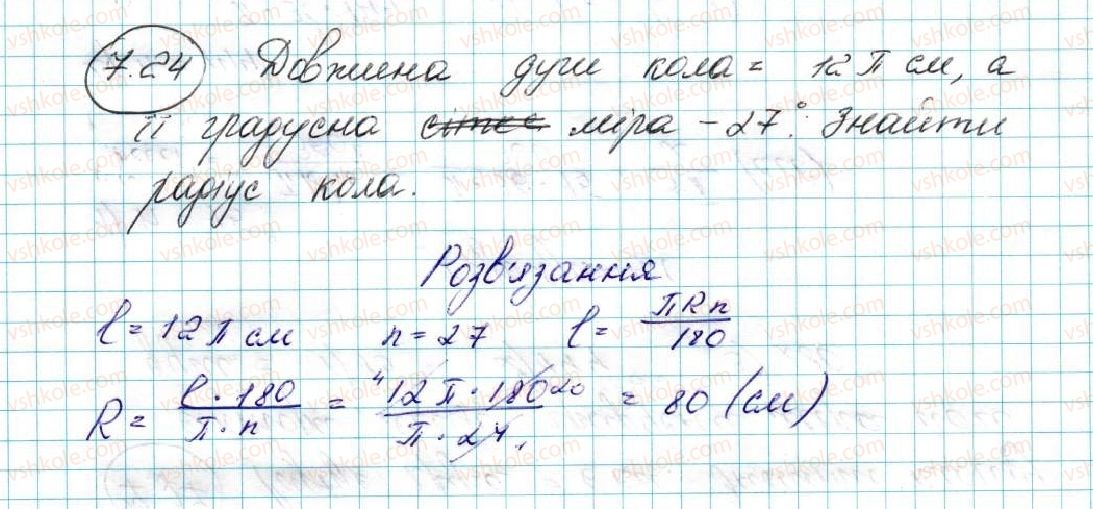 7.24 Довжина дуги кола = 12π см, а
її градусна міра – 27°. Знайти
радіус кола.
Розв'язання
l = 12π см n = 27 l = πRn/180
R = l·180/π·n = 4 12π·180 20/π·27 = 80 (см)